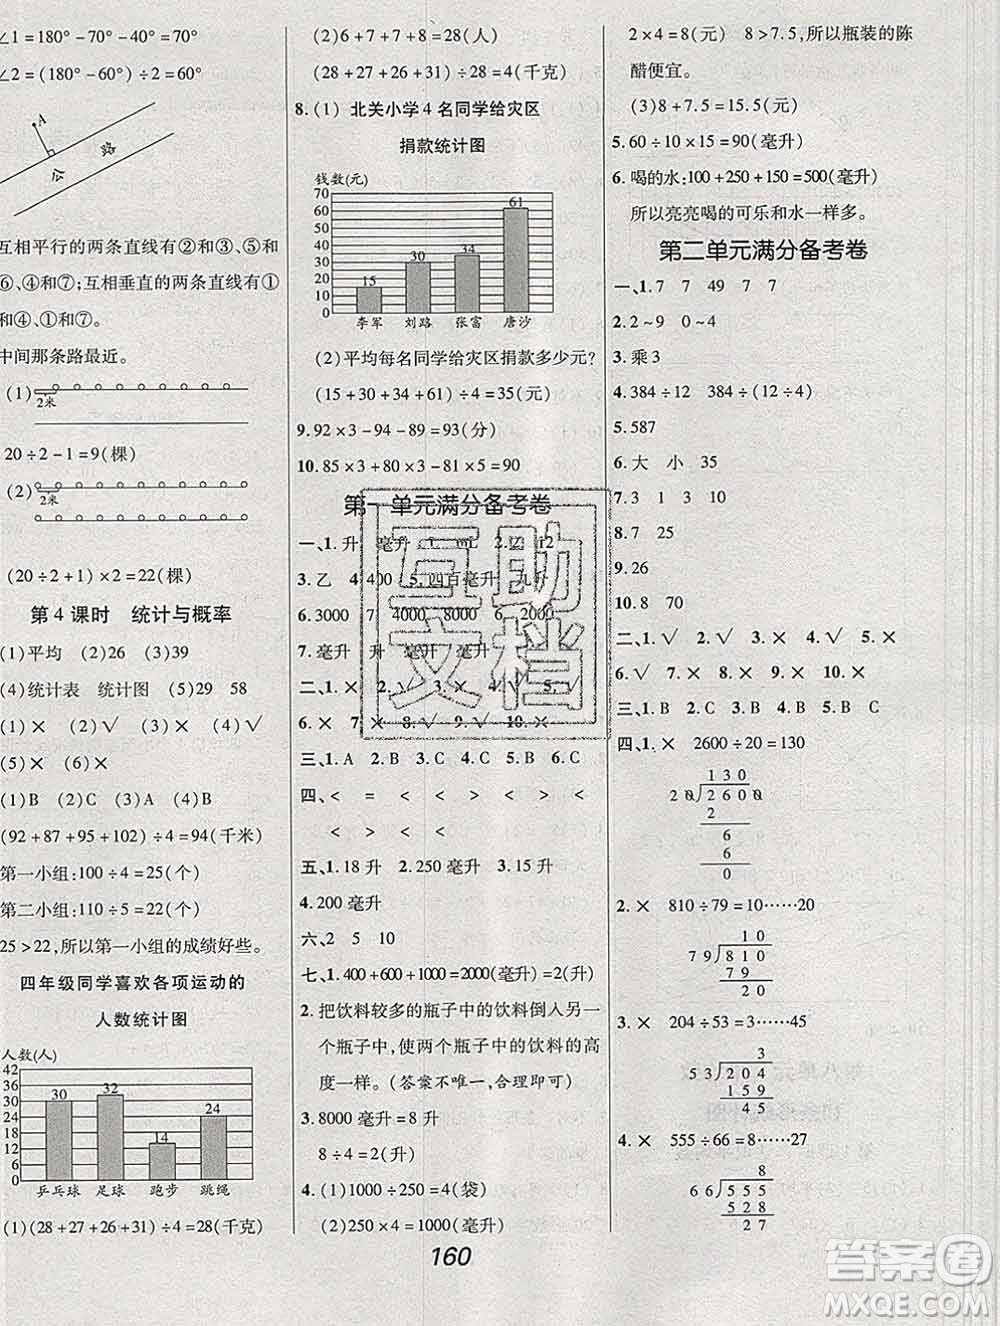 ∠1=180°-70°-40°=70°
∠2=(180°-60°)÷2=60°
A
公 路
互相平行的两条直线有②和③、⑤和
⑥、④和⑦;互相垂直的两条直线有①
和④、①和⑦。
中间那条路最近。
(1)
2米
20÷2-1=9(棵)
(2)
2米
(20÷2+1)×2=22(棵)
第4课时 统计与概率
(1)平均 (2)26 (3)39
(4)统计表 统计图 (5)29 58
(1)× (2)√ (3)× (4)√
(5)×
(1)B (2)C (3)A (4)B
(92+87+95+102)÷4=94(千米)
第一小组:100÷4=25(个)
第二小组:110÷5=22(个)
25>22,所以第一小组的成绩好些。
四年级同学喜欢各项运动的
人数统计图
人数(人)
42
36
30
24
18
12
6
0
30 32 14 24
乒乓球 足球 跑步 跳绳
(1)(28+27+26+31)÷4=28(千克)
(2)6+7+7+8=28(人)
(28+27+26+31)÷28=4(千克)
8.(1) 北关小学4名同学给灾区
捐款统计图
钱数(元)
70
60
50
40
30
20
10
0
15 30 34 61
李军 刘路 张富 唐沙
(2)平均每名同学给灾区捐款多少元?
(15+30+34+61)÷4=35(元)
9.92×3-94-89=93(分)
10.85×3+80×3-81×5=90
第一单元满分备考卷
一、1.升 毫升 L mL 2.
3.乙 4.400 5.四百毫升 九升
6.3000 7 4000 8000 6 2000
7.毫升 升 毫升
二、1.× 2.√ 4.√ 5.√
6.× 7.× 8.√ 9.√ 10.×
三、1.A 2.B 3.C 4.C 5.B
四、< = < < < > <
< > < <
五、1.18升 2.250毫升 3.15升
4.200毫升
六、2 5 10
七、1.400+600+1000=2000(毫升)=2(升)
2.把饮料较多的瓶子中的饮料倒入另一
个瓶子中,使两个瓶子中的饮料的高
度一样。(答案不唯一,合理即可)
3.8000毫升=8升
8÷4=2(升)
4.(1)1000÷250=4(袋)
(2)250×4=1000(毫升)
160
2×4=8(元) 8>7.5,所以瓶装的陈
醋便宜。
(3)8+7.5=15.5(元)
5.60÷10×15=90(毫升)
6.喝的水:100+250+150=500(毫升)
所以亮亮喝的可乐和水一样多。
第二单元满分备考卷
一、1.7 7 49 7 7
2.2~9 0~4
3.乘3
4.384÷12 384÷(12÷4)
5.587
6.大 小 35
7.3 1 3 10
8.7 25
9.26
10.8 70
二、1.√ 2.√ 3.× 4.√ 5.×
6.× 7.√ 8.× 9.× 10.×
三、1.B 2.A 3.A 4.C 5.B C
四、1.× 2600÷20=130
130
20 2600
2
6
6
0
2.× 810÷79=10……20
10
79 810
79
20
3.× 204÷53=3……45
3
53 204
159
45
4.× 555÷66=8……27
8
66 555
528
27
互助
文档
答案圈
MXQE.COM